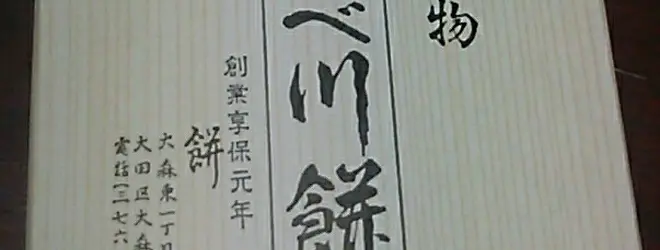 物
べ川餅
創業享保元年
餅
大森東一丁目
大田区大森
電話(三七六